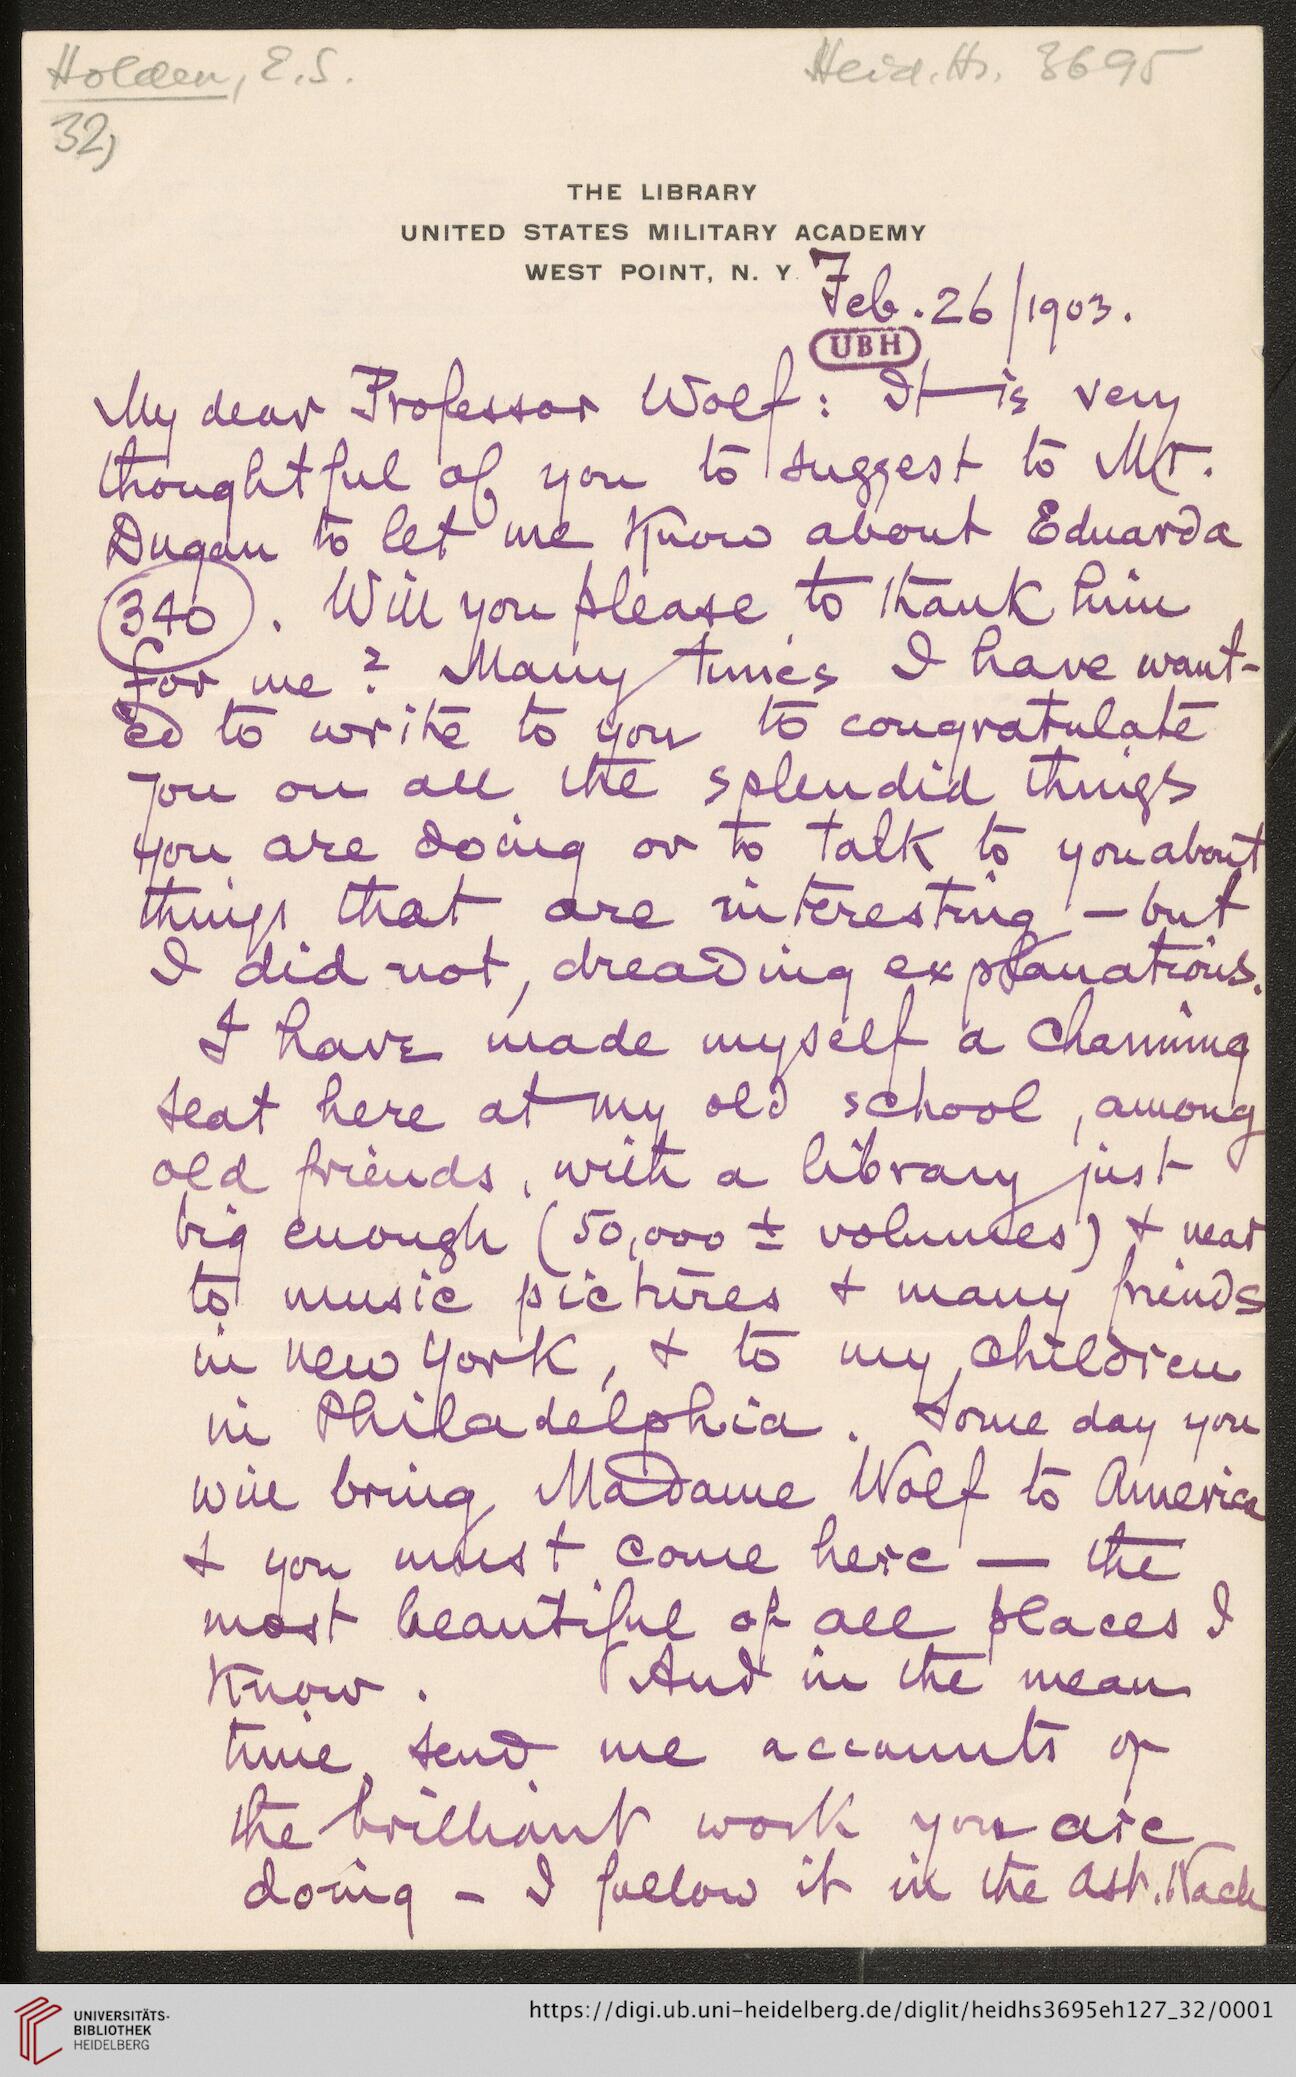 Holden, E.S.
Heid. Hs. 3695
32)
THE LIBRARY
UNITED STATES MILITARY ACADEMY
WEST POINT, N. Y.
Feb. 26/1903.
UBH
My dear Professor Wolf: It is very
thoughtful of you to suggest to Mr.
Dugan to let me know about Eduarda
(340). Will you please to thank him
for me? Many times I have want-
ed to write to you to congratulate
you on all the splendid things
you are doing or to talk to you about
things that are interesting – but
I did not, dreading explanations.
I have made myself a charming
seat here at my old school, among
old friends, with a library just
big enough (50,000 ± volumes) & near
to music pictures & many friends
in New York, & to my children
in Philadelphia. Some day you
will bring Madame Wolf to America
& you must come here — the
most beautiful of all places I
know. And in the mean
time send me accounts of
the brilliant work you are
doing – I follow it in the Ast. Nach
UNIVERSITÄTS-
BIBLIOTHEK
HEIDELBERG
https://digi.ub.uni-heidelberg.de/diglit/heidhs3695eh127_32/0001